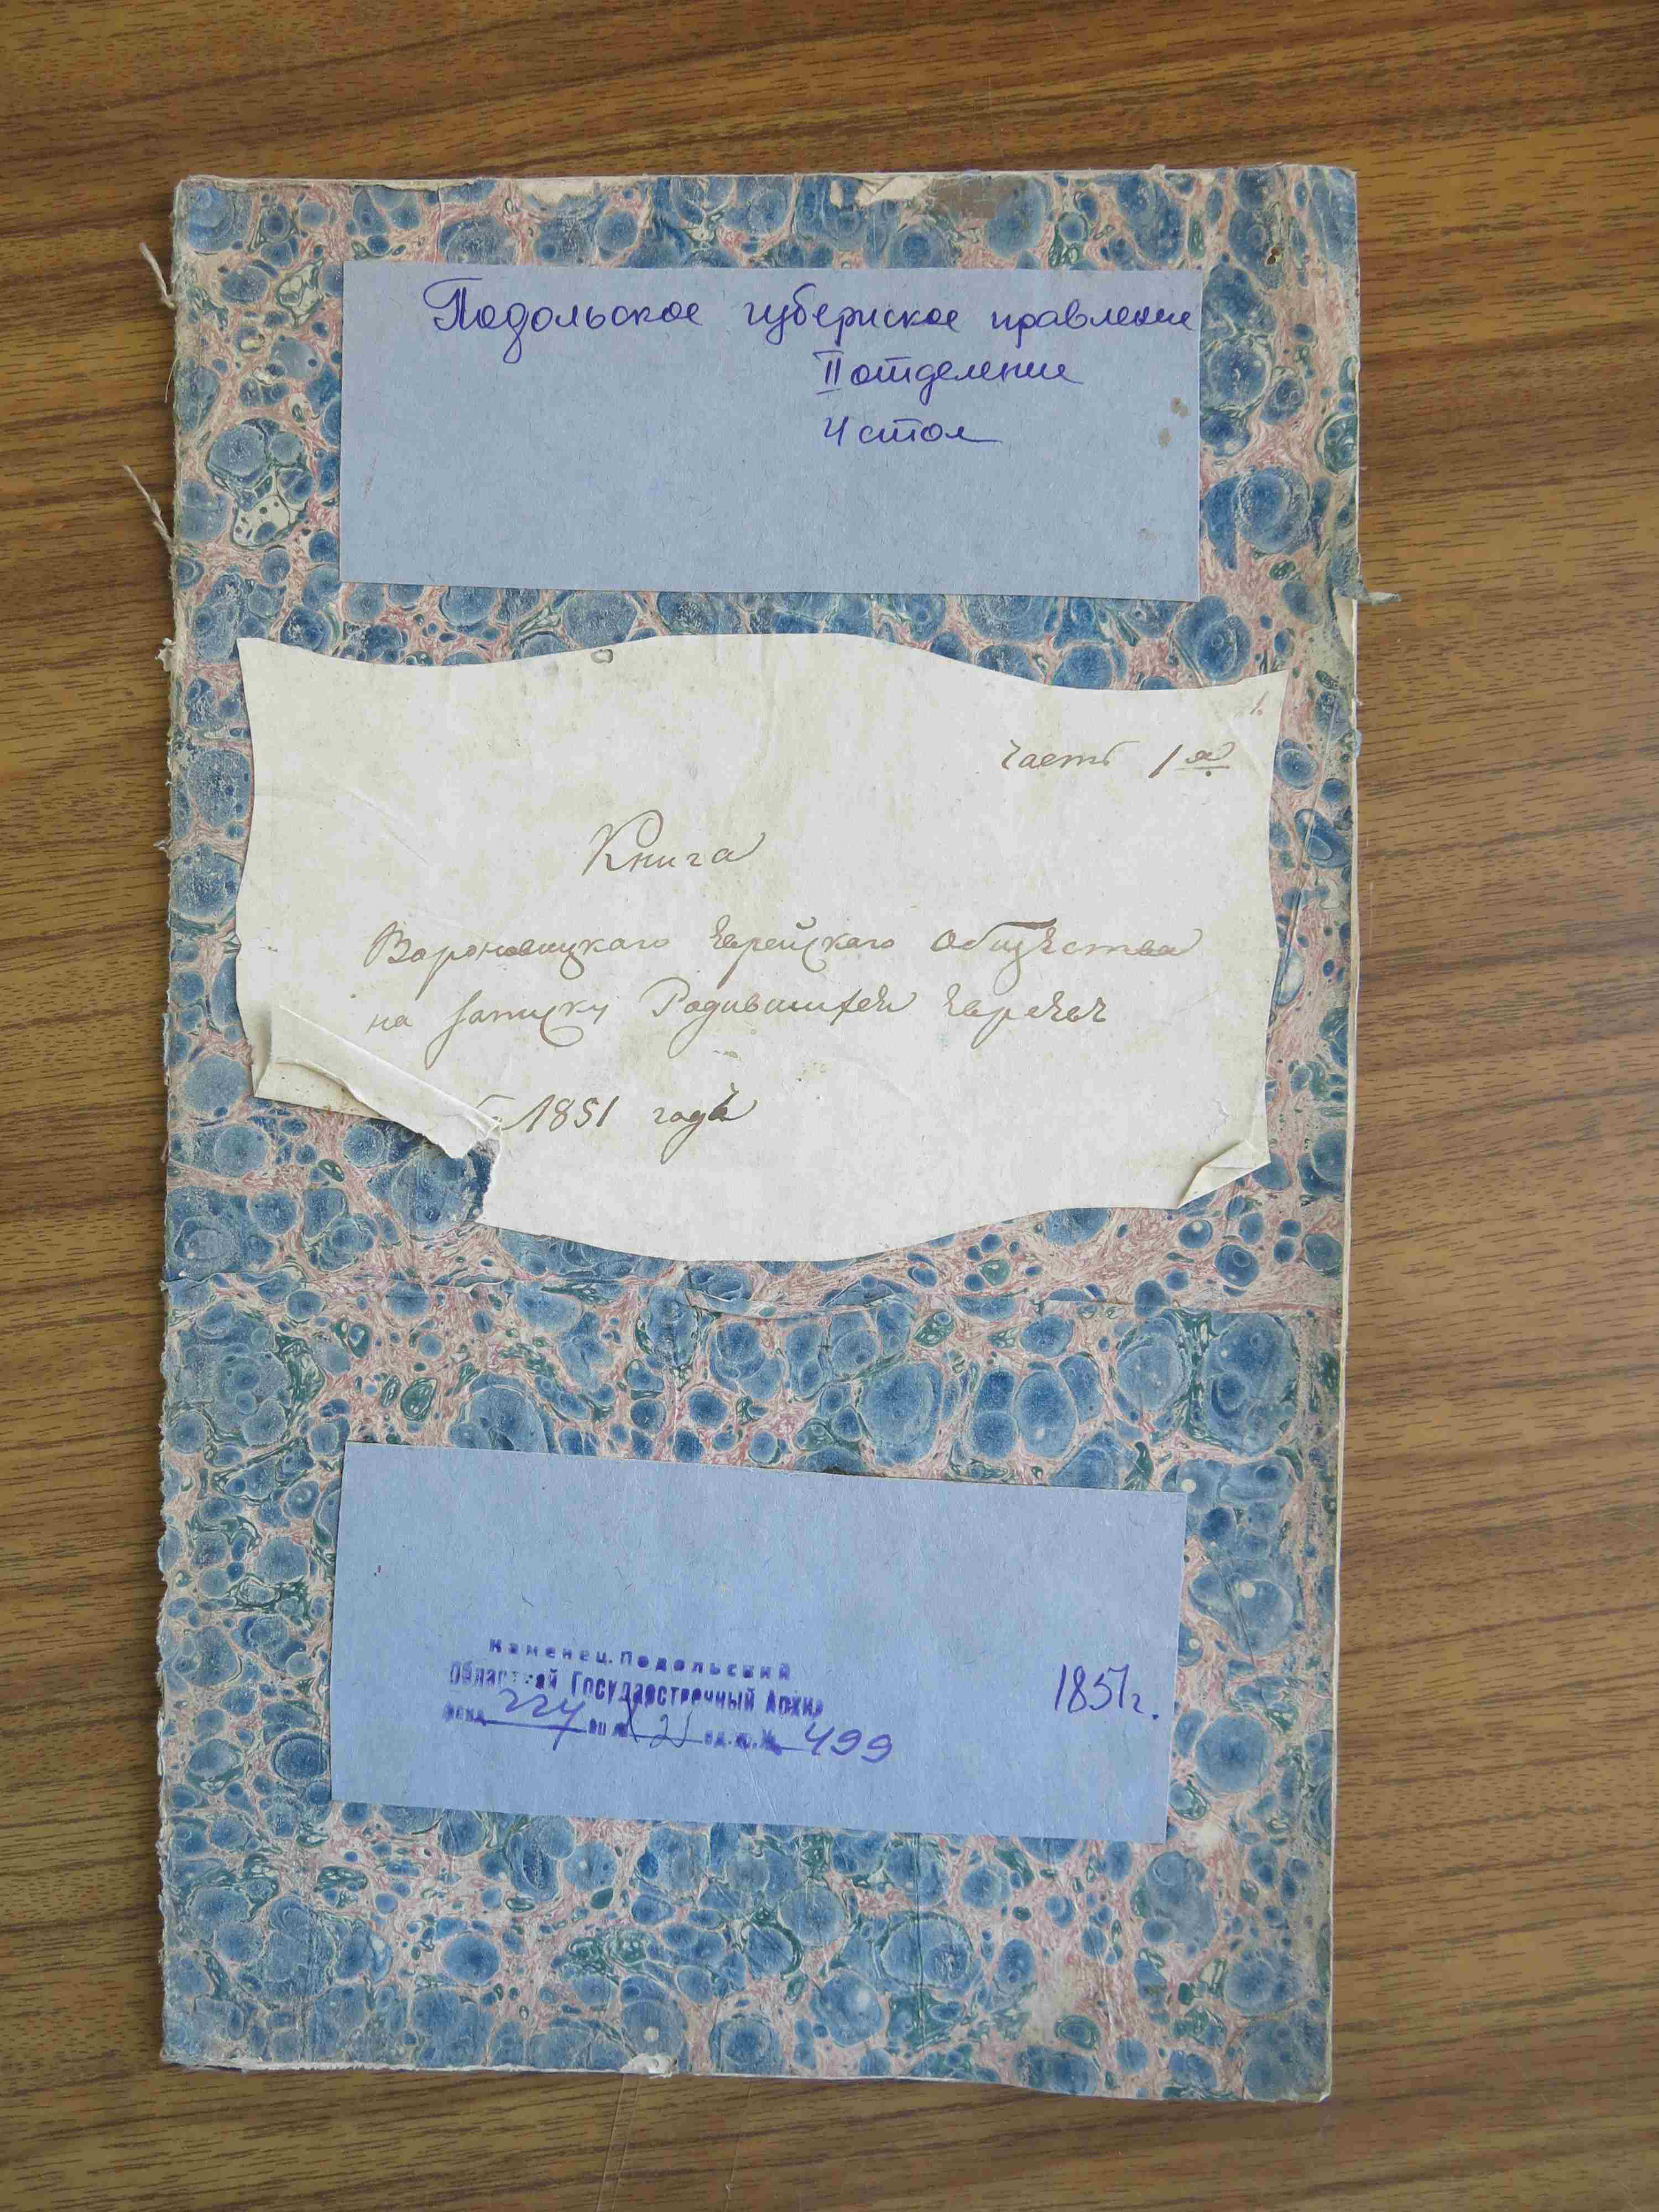 Подольское губернское правление
II отделение
4 стол
1.
Часть 1я
Книга
Вороновицкаго Еврейскаго Общества
на записку Родившихся Евреев
1851 года
Каменец-Подольский
Областной Государственный Архив
фонд 224 оп № 21 ед. хр. № 499
1851г.